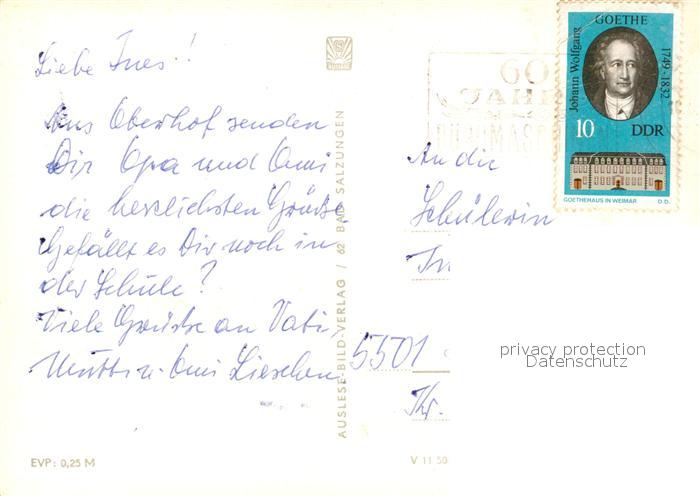 Liebe Ines!
Aus Oberhof senden
Dir Opa und Omi
die herzlichsten Grüße
Gefällt es Dir noch in
der Schule?
Viele Grüße an Vati,
Mutti u. Omi Lieschen
EVP: 0,25 M
AUSLESE-BILD-VERLAG / 62 BAD SALZUNGEN
60
JAHRE
Johann Wolfgang
GOETHE
1749-1832
10 DDR
GOETHEHAUS IN WEIMAR D.D.
An die
Schülerin
In
5501
Thr.
V 11 50
privacy protection
Datenschutz